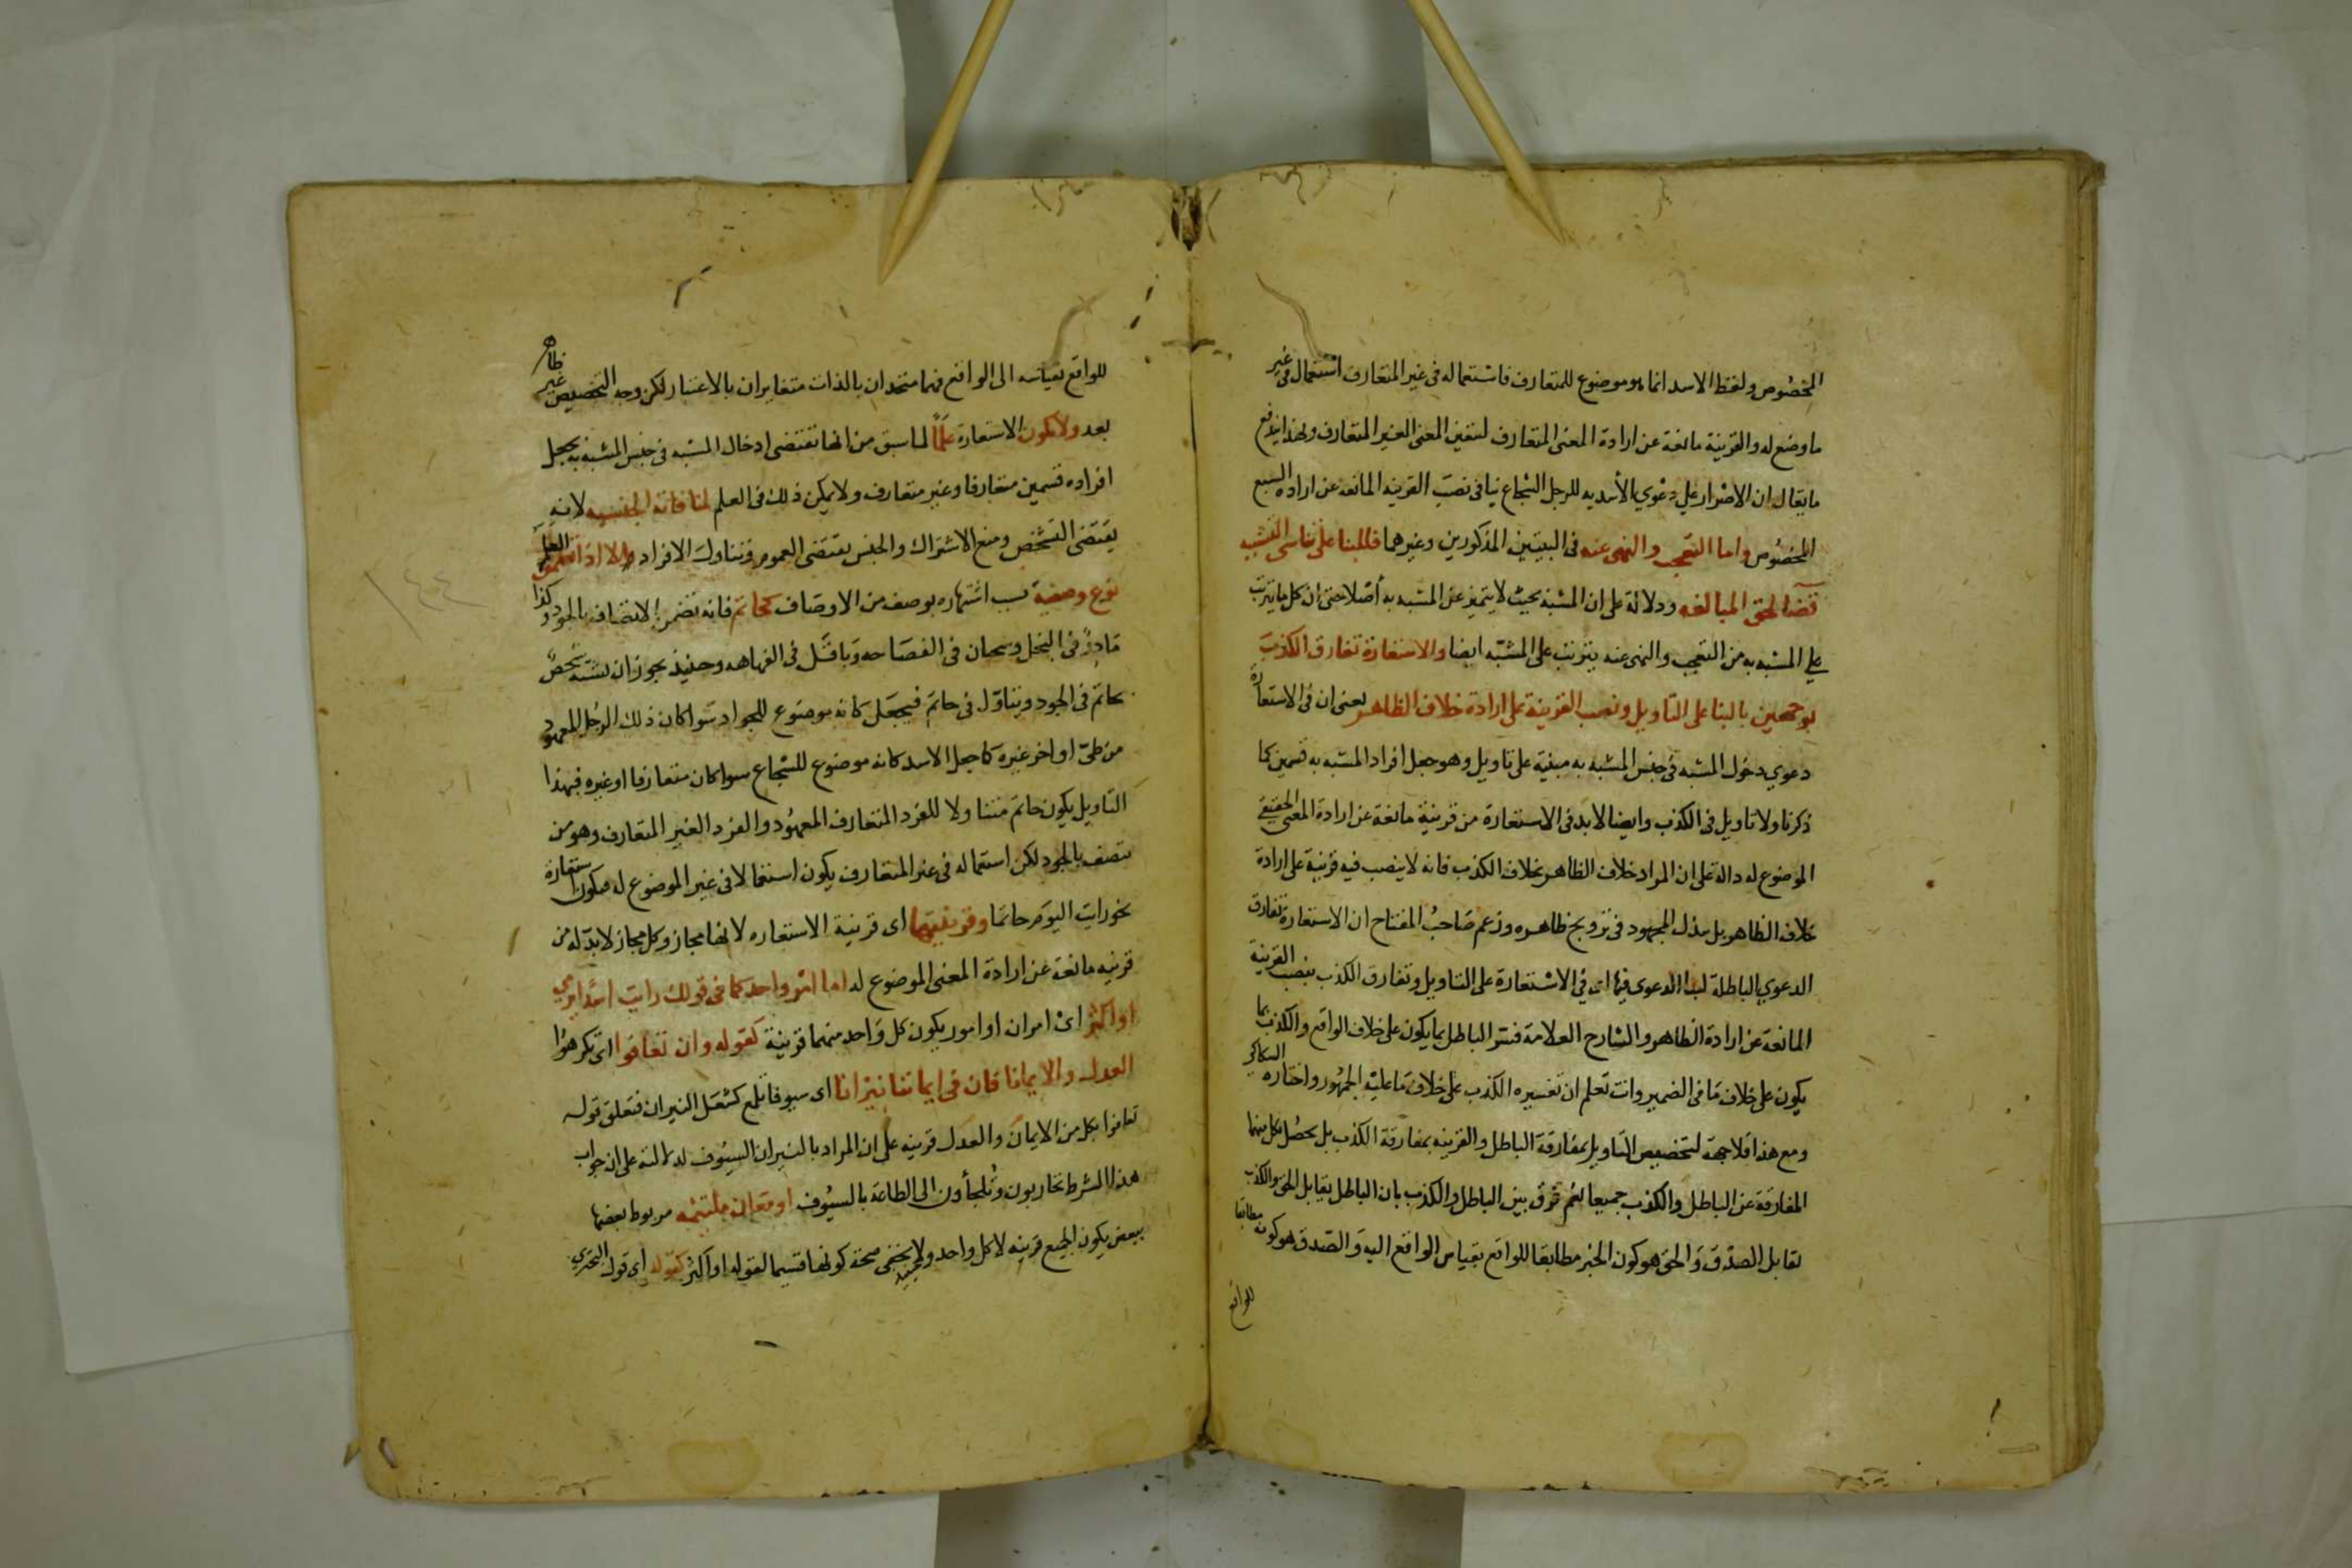 المخصوص ولفظ الاسد انما هو موضوع للمتعارف فاستعماله في غير المتعارف استعمال في غير
ما وضع له والقرينة مانعة عن ارادة المعنى المتعارف لتعين المعنى الغير المتعارف وبهذا يندفع
ما يقال ان الاصرار علي دعوي الأسديه للرجل الشجاع ينافي نصب القرينه المانعه عن اراده السبع
المخصوص واما التعجب والنهي عنه في البيتين المذكورين وغيرهما فللبنا على تناسى التشبيه
قضا لحق المبالغه ودلالة على ان المشبه بحيث لا يتميز عن المشبه به أصلا حتى ان كل ما يترتب
علي المشبه به من التعجب والنهى عنه يترتب على المشبه ايضا والاستعارة تفارق الكذب
بوجهين بالبنا على التاويل ونصب القرينة على ارادة خلاف الظاهر يعنى ان في الاستعارة
دعوي دخول المشبه في جنس المشبه به مبنية على تاويل وهو جعل افراد المشبه به قسمين كما
ذكرنا ولا تاويل في الكذب وايضا لابد في الاستعارة من قرينة مانعة عن ارادة المعنى الحقيقي
الموضوع له دالة على ان المراد خلاف الظاهر بخلاف الكذب فانه لا ينصب فيه قرينة على ارادة
خلاف الظاهر بل يبذل المجهود في ترويج ظاهره وزعم صاحب المفتاح ان الاستعارة تفارق
الدعوي الباطلة لبنا الدعوى فيها اي في الاستعارة على التاويل وتفارق الكذب بنصب القرينة
المانعة عن ارادة الظاهر والشارح العلامة فسر الباطل بما يكون على خلاف الواقع والكذب بما
يكون على خلاف ما في الضمير وانت تعلم ان تفسيره الكذب على خلاف ما عليه الجمهور واختاره السكاكي
ومع هذا فلا جهة لتخصيص التاويل بمفارقة الباطل والقرينه بمفارقة الكذب بل يحصل بكل منهما
المفارقة عن الباطل والكذب جميعا ثم فرق بين الباطل والكذب بان الباطل يقابل الحق والكذب
يقابل الصدق والحق هو كون الخبر مطابقا للواقع بقياس الواقع اليه والصدق هو كونه مطابقا
للواقع
للواقع بقياسه الى الواقع فهما متحدان بالذات متغايران بالاعتبار لكن وجه التخصيص غير ظاهر
بعد ولا تكون الاستعارة علما لما سبق من انها تقتضى ادخال المشبه في جنس المشبه به بجعل
افراده قسمين متعارفا وغير متعارف ولا يمكن ذلك في العلم لمنافاته الجنسيه لانه
يقتضى التشخص ومنع الاشتراك والجنس يقتضى العموم وتناول الافراد الا اذا تضمن العلم
نوع وصفية بسبب اشتهاره بوصف من الاوصاف كحاتم فانه تضمن الاتصاف بالجود وكذا
مادر في البخل وسحبان في الفصاحه وباقل في الفهاهه وحينئذ يجوز ان يشبه شخص
بحاتم في الجود ويتاول في حاتم فيجعل كانه موضوع للجواد سوا كان ذلك الرجل المعهود
من طي او اخر غيره كما جعل الاسد كانه موضوع للشجاع سوا كان متعارفا او غيره فبهذا
التاويل يكون حاتم متناولا للفرد المتعارف المعهود والفرد الغير المتعارف وهو من
يتصف بالجود لكن استعماله في غير المتعارف يكون استعمالا في غير الموضوع له فيكون استعارة
نحو رايت اليوم حاتما وقرينتها اى قرينة الاستعاره لانها مجاز وكل مجاز لابد له من
قرينه مانعة عن ارادة المعنى الموضوع له اما امر واحد كما في قولك رايت اسدا يرمي
او اكثر اى امران او امور يكون كل واحد منهما قرينة كقوله وان تعافوا اى تكرهوا
العدل والايمانا فان في ايماننا نيرانا اى سيوفا تلمع كشعل النيران فتعلق قوله
تعافوا بكل من الايمان والعدل قرينه على ان المراد بالنيران السيوف لدلالته على ان جواب
هذا الشرط تحاربون وتلجأون الى الطاعة بالسيوف او معان ملتئمه مربوط بعضها
ببعض يكون الجميع قرينه لا كل واحد ولا يخفى صحة كونها قسيما لقوله او اكثر كقوله اى قول البحتري